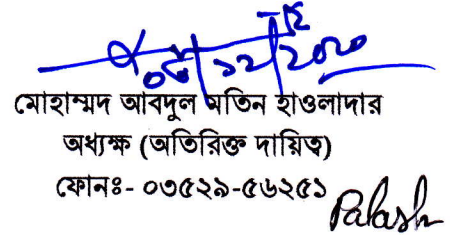 ০৮/১২/২০২০
মোহাম্মদ আবদুল মতিন হাওলাদার
অধ্যক্ষ (অতিরিক্ত দায়িত্ব)
ফোনঃ- ০৩৫২৯-৫৬২৫১
Palash